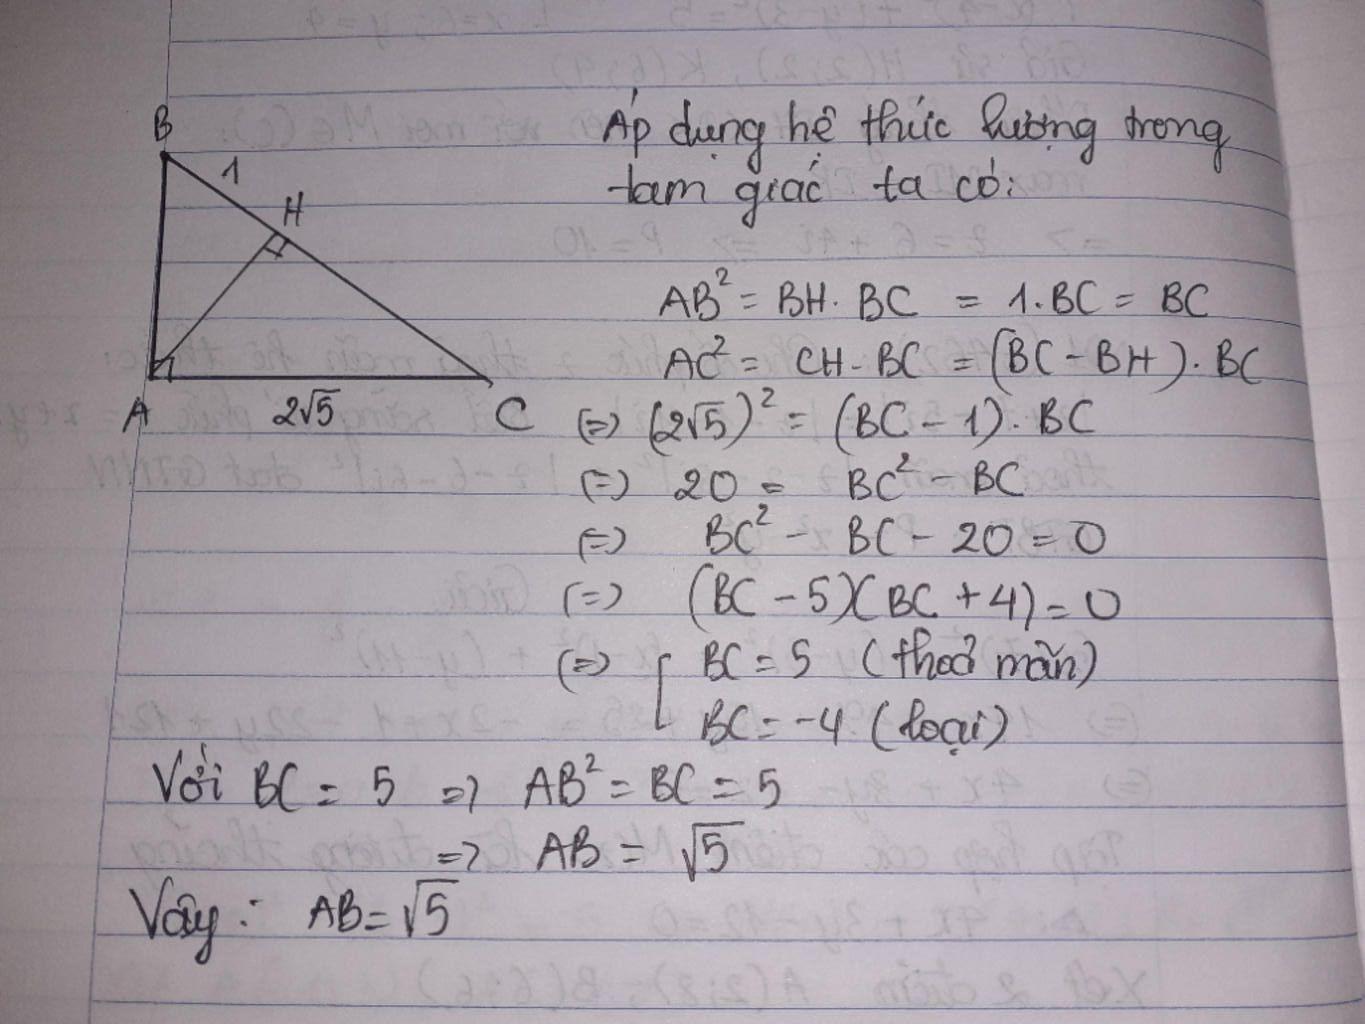 B
1
H
A
2√5
C
Áp dụng hệ thức lượng trong
tam giác ta có:
AB² = BH. BC = 1. BC = BC
AC² = CH. BC = (BC - BH). BC
(=) (2√5)² = (BC - 1). BC
(=) 20 = BC² - BC
(=) BC² - BC - 20 = 0
(=) (BC - 5)(BC + 4) = 0
(=) [ BC = 5 (thoả mãn)
BC = -4 (loại)
Với BC = 5 => AB² = BC = 5
=> AB = √5
Vậy: AB = √5